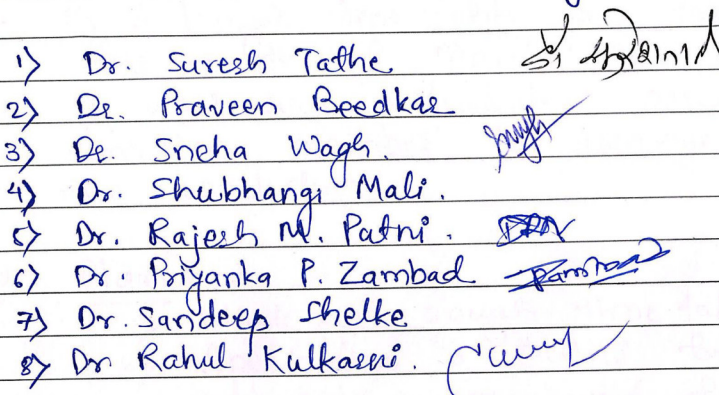 1) Dr. Suresh Tathe
2) Dr. Praveen Beedkar
3) Dr. Sneha Wagh.
4) Dr. Shubhangi Mali.
5) Dr. Rajesh M. Patni.
6) Dr. Priyanka P. Zambad
7) Dr. Sandeep Shelke
8) Dr Rahul Kulkarni.